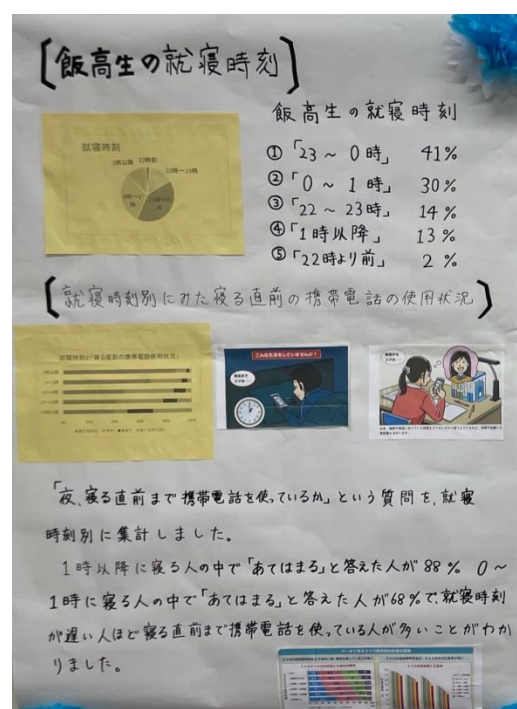 【飯高生の就寝時刻】
飯高生の就寝時刻
①「23～0時」 41%
②「0～1時」 30%
③「22～23時」 14%
④「1時以降」 13%
⑤「22時より前」 2%
就寝時刻
1時以降 22時前
22時～23時
【就寝時刻別にみた寝る直前の携帯電話の使用状況】
就寝時刻と「寝る直前の携帯電話使用状況」
こんな生活をしていませんか？
「夜、寝る直前まで携帯電話を使っているか」という質問を、就寝
時刻別に集計しました。
1時以降に寝る人の中で「あてはまる」と答えた人が88% 0～
1時に寝る人の中で「あてはまる」と答えた人が68%で、就寝時刻
が遅い人ほど寝る直前まで携帯電話を使っている人が多いことがわか
りました。